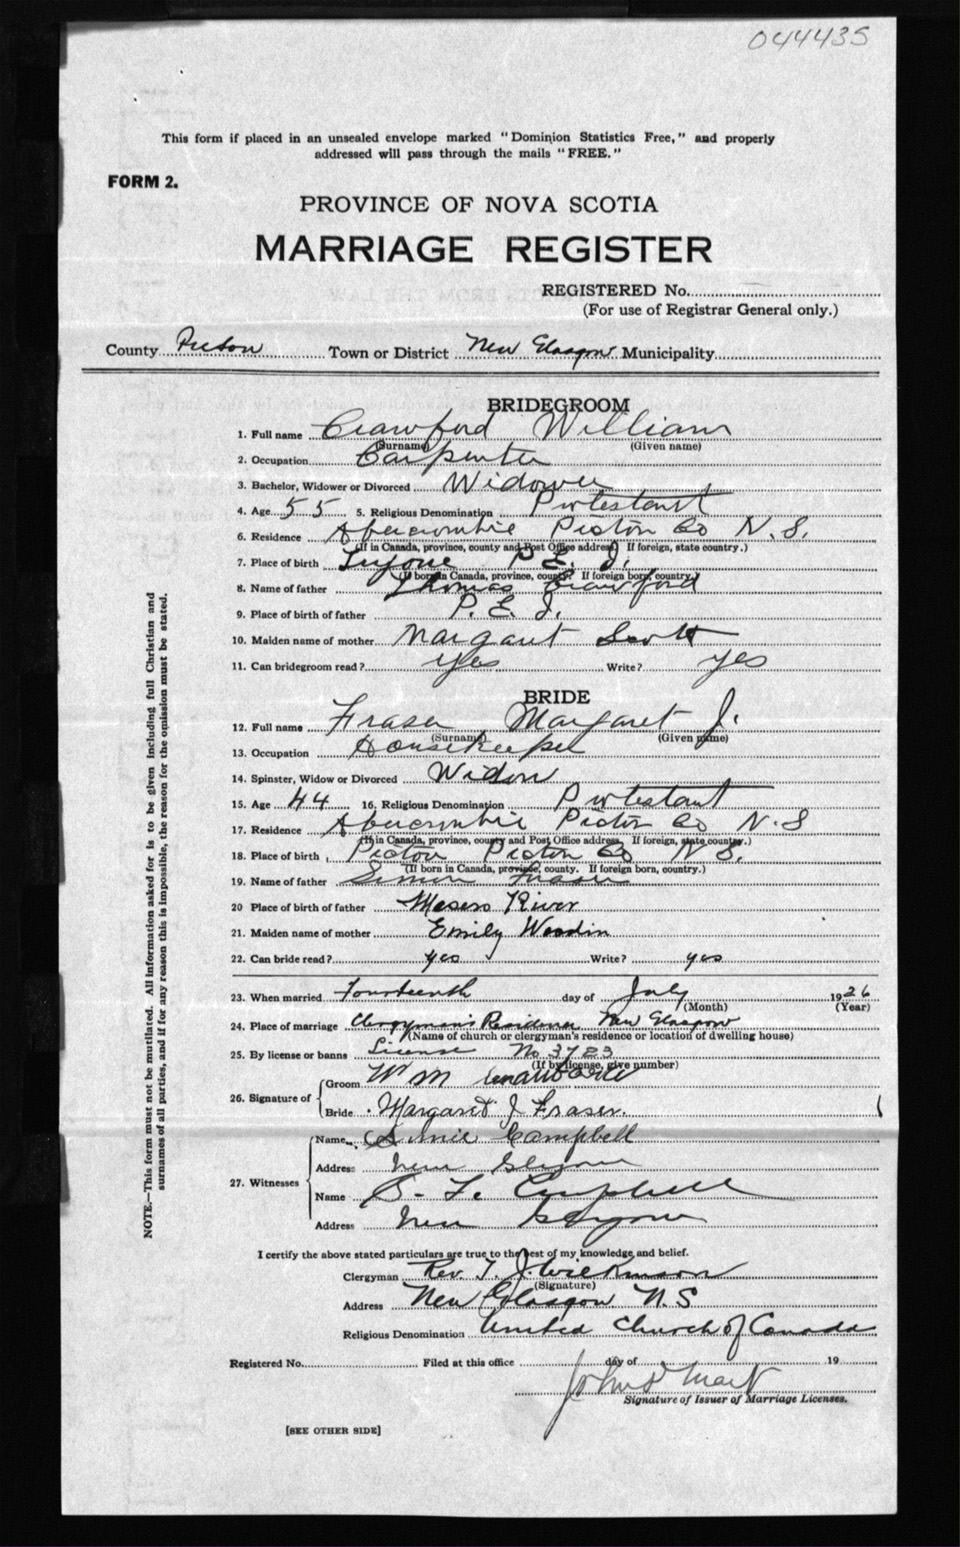 044435
This form if placed in an unsealed envelope marked "Dominion Statistics Free," and properly
addressed will pass through the mails "FREE."
FORM 2.
PROVINCE OF NOVA SCOTIA
MARRIAGE REGISTER
REGISTERED No.
(For use of Registrar General only.)
County Pictou Town or District New Glasgow Municipality
BRIDEGROOM
1. Full name Crawford William
(Surname) (Given name)
2. Occupation Carpenter
3. Bachelor, Widower or Divorced Widower
4. Age 55 5. Religious Denomination Protestant
6. Residence Abercrombie Pictou Co N.S.
(If in Canada, province, county and Post Office address. If foreign, state country.)
7. Place of birth Tryone P.E.I.
(If born in Canada, province, county. If foreign born, country.)
8. Name of father Thomas Crawford
9. Place of birth of father P.E.I.
10. Maiden name of mother Margaret Scott
11. Can bridegroom read? yes Write? yes
BRIDE
12. Full name Fraser Margaret J.
(Surname) (Given name)
13. Occupation Housekeeper
14. Spinster, Widow or Divorced Widow
15. Age 44 16. Religious Denomination Protestant
17. Residence Abercrombie Pictou Co N.S
(If in Canada, province, county and Post Office address. If foreign, state country.)
18. Place of birth Pictou Pictou Co N.S.
(If born in Canada, province, county. If foreign born, country.)
19. Name of father Simon Fraser
20 Place of birth of father Mosers River
21. Maiden name of mother Emily Woodin
22. Can bride read? yes Write? yes
23. When married Fourteenth day of July 1926
(Month) (Year)
24. Place of marriage Clergyman's Residence New Glasgow
(Name of church or clergyman's residence or location of dwelling house)
25. By license or banns License No 3723
(If by license, give number)
26. Signature of
Groom Wm
Bride Margaret J Fraser.
27. Witnesses
Name Campbell
Address New Glasgow
Name S. F. Campbell
Address New Glasgow
I certify the above stated particulars are true to the best of my knowledge and belief.
Clergyman Rev. T. J. Wilkinson
(Signature)
Address New Glasgow N.S
Religious Denomination United Church of Canada
Registered No. Filed at this office day of 19
John
Signature of Issuer of Marriage Licenses.
[SEE OTHER SIDE]
NOTE.—This form must not be mutilated. All information asked for is to be given including full Christian and
surnames of all parties, and if for any reason this is impossible, the reason for the omission must be stated.